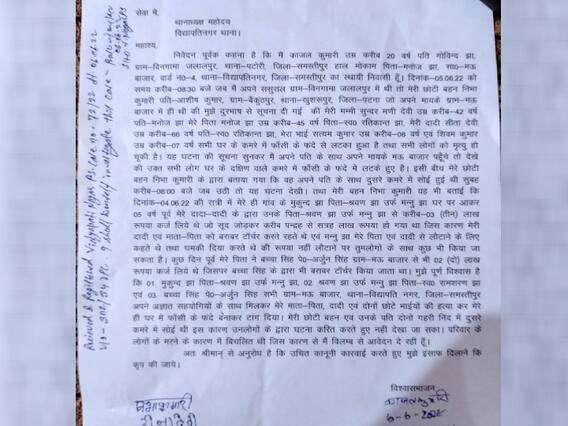 सेवा में,
थानाध्यक्ष महोदय
विद्यापतिनगर थाना।
महाशय,
निवेदन पूर्वक कहना है कि मैं काजल कुमारी उम्र करीब 20 वर्ष पति गोविन्द झा,
ग्राम-विनगामा जलालपुर, थाना-पटोरी, जिला-समस्तीपुर हाल मोकाम पिता-मनोज झा, सा0-मऊ
बाजार वार्ड न0-4, थाना-विद्यापतिनगर, जिला-समस्तीपुर का स्थायी निवासी हूँ। दिनांक-05.06.22 को
समय करीब-08.30 बजे जब मैं अपने ससुराल ग्राम-विनगामा जलालपुर में थी तो मेरी छोटी बहन निभा
कुमारी पति-आशीष कुमार, ग्राम-बैकुंठपुर, थाना-खुशरूपुर, जिला-पटना जो अपने मायके ग्राम-मऊ
बाजार में ही थी की मुझे दुरभाष से सूचना दी गई की मेरी मम्मी सुन्दर मणी देवी उम्र करीब-42 वर्ष
पति-मनोज झा मेरे पिता मनोज झा उम्र करीब-45 वर्ष पिता-स्व0 रतिकान्त झा, मेरी दादी सीता देवी
उम्र करीब-66 वर्ष पति-स्व0 रतिकान्त झा, मेरा भाई सत्यम कुमार उम्र करीब-08 वर्ष एवं शिवम कुमार
उम्र करीब-07 वर्ष सभी घर के कमरे में फाँसी के फंदे से लटका हुआ है तथा सभी लोगों को मृत्यु हो
चूकी है। यह घटना की सूचना सुनकर मैं अपने पति के साथ अपने मायके मऊ बाजार पहूँचे तो देखे
की उक्त सभी लोग घर के दक्षिण वाले कमरे में फाँसी के फंदे में लटके हुए है। इसी बीच मेरे छोटी
बहन निभा कुमारी के द्वारा बताया गया कि वह अपने पति के साथ दुसरे कमरे में सोई हुई थी सुबह
करीब-08:00 बजे जब उठी तो यह घटना देखी। तथा मेरी बहन निभा कुमारी यह भी बताई कि
दिनांक-04.06.22 की रात्री में मेरे ही गांव के मुकुन्द झा पिता-श्रवण झा उर्फ मन्नु झा घर पर आकर
05 वर्ष पूर्व मेरे दादा-दादी के द्वारा उनके पिता-श्रवण झा उर्फ मन्नु झा से करीब-03 (तीन) लाख
रूपया कर्ज लिये थे जो सूद जोडकर करीब पन्द्रह से सत्रह लाख रूपया हो गया था जिस कारण मेरी
दादी एवं माता-पिता को बराबर टॉर्चर करते रहते थे एवं मन्नु झा मेरे पिता एवं दादी से लौटाने के लिए
कहते थे तथा घमकी दिया करते थे की रूपया नहीं लौटाने पर तुमलोगों के साथ कुछ भी किया जा
सकता है। कुछ दिन पूर्व मेरे पिता ने बच्चा सिंह पे0-अर्जुन सिंह ग्राम-मऊ बाजार से भी 02 (दो) लाख
रूपया कर्ज लिये थे जिसपर बच्चा सिंह के द्वारा भी बराबर टॉर्चर किया जाता था। मुझे पूर्ण विश्वास है
कि 01. मुकुन्द झा पिता-श्रवण झा उर्फ मन्नु झा, 02. श्रवण झा उर्फ मन्नु झा पिता-स्व0 रामशरण झा
एवं 03. बच्चा सिंह पे0-अर्जुन सिंह सभी ग्राम-मऊ बाजार, थाना-विद्यापति नगर, जिला-समस्तीपुर
अपने अज्ञात सहयोगियों के साथ मिलकर मेरे माता-पिता, दादी एवं दोनो छोटे भाईयों की हत्या कर मेरे
ही घर में फाँसी के फंदे बनाकर टांग दिया। मेरी छोटी बहन एवं उनके पति दोनों गहरी निंद में दुसरे
कमरे मे सोयी थी इस कारण उनलोगों के द्वारा घटना करित करते हुए नहीं देखा जा सका। परिवार के
लोगों के मरने के कारण में बिचलित थी जिस कारण से मैं विलम्ब से आवेदन दे रही हूँ।
अतः श्रीमान् से अनुरोध है कि उचित कानूनी कारवाई करते हुए मुझे इंसाफ दिलाने कि
कृप की जाये।
विश्वासभाजन
काजल कुमारी
6-6-2022
Recieved & Registered Vidyapati Nagar P.S. Case no. 72/22 dt. 06.06.22
u/s - 302/34 IPC. I shall himself investigate this case -